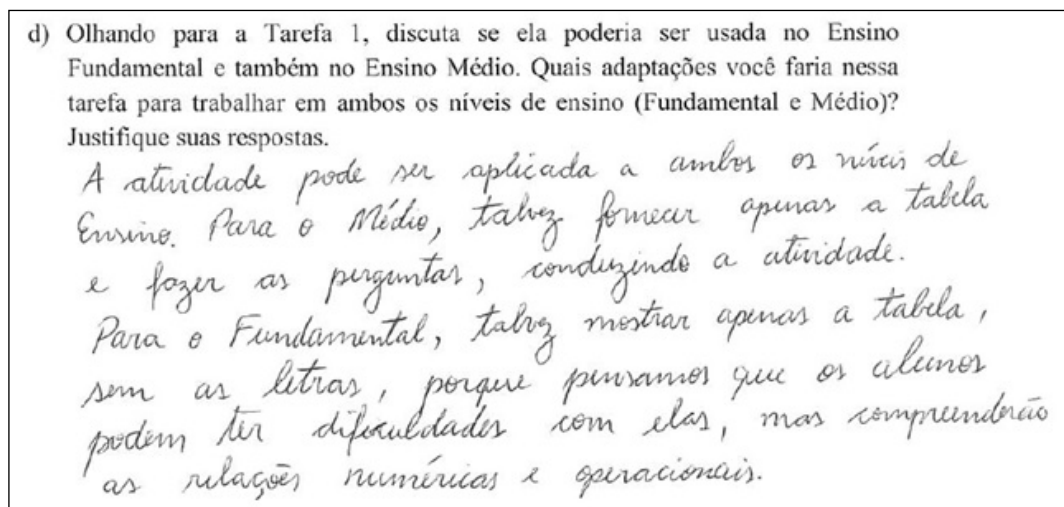 d) Olhando para a Tarefa 1, discuta se ela poderia ser usada no Ensino
Fundamental e também no Ensino Médio. Quais adaptações você faria nessa
tarefa para trabalhar em ambos os níveis de ensino (Fundamental e Médio)?
Justifique suas respostas.
A atividade pode ser aplicada a ambos os níveis de
Ensino. Para o Médio, talvez fornecer apenas a tabela
e fazer as perguntas, conduzindo a atividade.
Para o Fundamental, talvez mostrar apenas a tabela,
sem as letras, porque pensamos que os alunos
podem ter dificuldades com elas, mas compreenderão
as relações numéricas e operacionais.